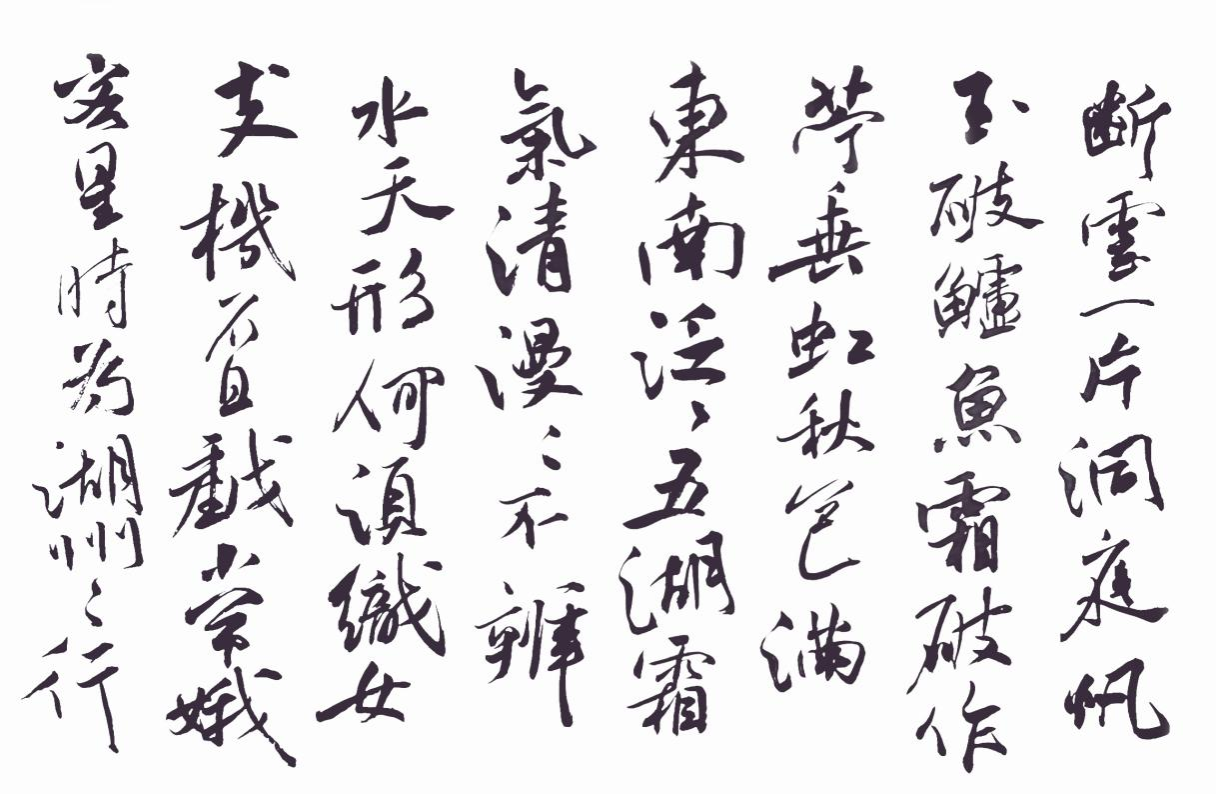 斷雲一片洞庭帆
玉破鱸魚霜破作
苧垂虹秋色滿
東南泛〻五湖霜
氣清漫〻不辨
水天形何須織女
支機石且戲常娥
客星時為湖州之行